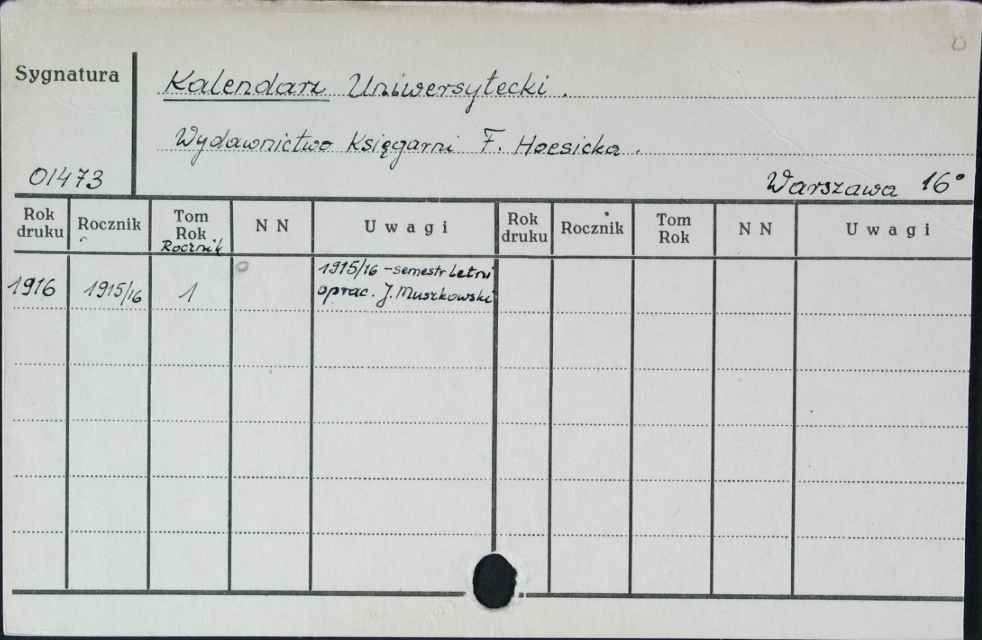 Sygnatura
Kalendarz Uniwersytecki.
Wydawnictwo Księgarni F. Hoesicka.
01473
Warszawa 16°
Rok druku Rocznik Tom Rok Rocznik NN Uwagi Rok druku Rocznik Tom Rok NN Uwagi
1916 1915/16 1 1915/16 - semestr letni
oprac. J. Muszkowski